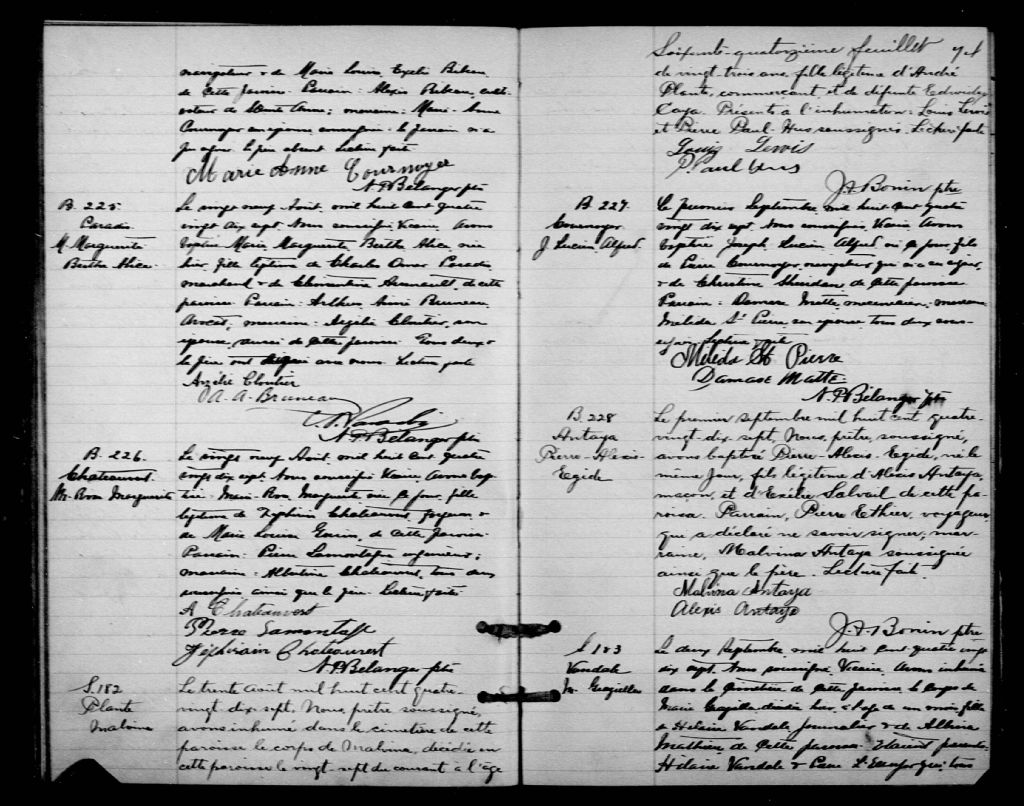 navigateur & de Marie Louise Exelie Bibeau
de cette paroisse. Parrain: Alexis Bibeau, culti-
vateur de Sainte Anne; marraine: Marie-Anne
Cournoyer son épouse soussignée. le parrain n'a
pu signer. le père absent. Lecture faite
Marie Anne Cournoyer
N. P. Bélanger ptre
B. 225
Paradis
M. Marguerite
Berthe Alice
Le vingt neuf Août, mil huit cent quatre
vingt dix sept. Nous soussigné Vicaire, avons
baptisé Marie, Marguerite Berthe Alice née
hier, fille légitime de Charles Omer Paradis,
marchand & de Clorentine Arseneault, de cette
paroisse. Parrain: Arthur Aimé Bruneau,
Avocat, marraine: Azélie Cloutier, son
épouse, aussi de cette paroisse. Tous deux &
le père ont signé avec nous. Lecture faite
Azélie Cloutier
A. A. Bruneau
Paradis
N. P. Bélanger ptre
B. 226
Chateauvert
M. Rosa Marguerite
Le vingt neuf Août, mil huit cent quatre
vingt dix sept. Nous soussigné Vicaire, avons bap-
tisé Marie Rosa Marguerite née ce jour, fille
légitime de Zéphirin Chateauvert, forgeron &
de Marie Louise de cette paroisse.
Parrain: Pierre Lamontagne
marraine: Albertine Chateauvert, tous deux
soussignés ainsi que le père. Lecture faite
A Chateauvert
Pierre Lamontagne
Zéphirin Chateauvert
N. P. Bélanger ptre
S. 182
Plante
Malvina
Le trente août mil huit cent quatre
vingt dix sept, Nous, prêtre soussigné,
avons inhumé dans le cimetière de cette
paroisse le corps de Malvina, décédée en
cette paroisse le vingt-sept du courant à l'âge
Soixante-quatorzième feuillet 74
de vingt trois ans, fille légitime d'André
Plante, commerçant et de défunte Edwidge
Caya. Présents à l'inhumation: Louis
et Pierre Paul Hus soussignés. Lecture faite
Louis
P. Paul Hus
J. A. Bonin ptre
B. 227
Cournoyer
J. Lucien Alfred
Le premier Septembre, mil huit cent quatre
vingt dix sept. Nous soussigné, Vicaire avons
baptisé Joseph Lucien Alfred né ce jour, fils
de Pierre Cournoyer, navigateur qui n'a su signer,
& de Christine Sheridan de cette paroisse
Parrain: Damase Matte, mécanicien; marraine
Mélida St Pierre, son épouse, tous deux sous-
signés. Lecture faite
Mélida St Pierre
Damase Matte
N. P. Bélanger ptre
B. 228
Antaya
Pierre-Alexis-
Egide
Le premier septembre mil huit cent quatre-
vingt-dix sept, Nous, prêtre, soussigné,
avons baptisé Pierre-Alexis-Egide, né le
même jour, fils légitime d'Alexis Antaya,
maçon, et d'Exélie Salvail de cette pa-
roisse. Parrain, Pierre Ethier, voyageur,
qui a déclaré ne savoir signer, mar-
raine, Malvina Antaya soussignée
ainsi que le père. Lecture fait.
Malvina Antaya
Alexis Antaya
J. A. Bonin ptre
S 183
Vandale
M.
Le deux Septembre, mil huit cent quatre vingt
dix sept. Nous soussigné, Vicaire avons inhumé
dans le cimetière de cette paroisse, le corps de
Marie décédée hier, à l'age de un mois, fille
de Hilaire Vandale Journalier & de Albina
Mathieu de cette paroisse. Etaient présents
Hilaire Vandale & tous